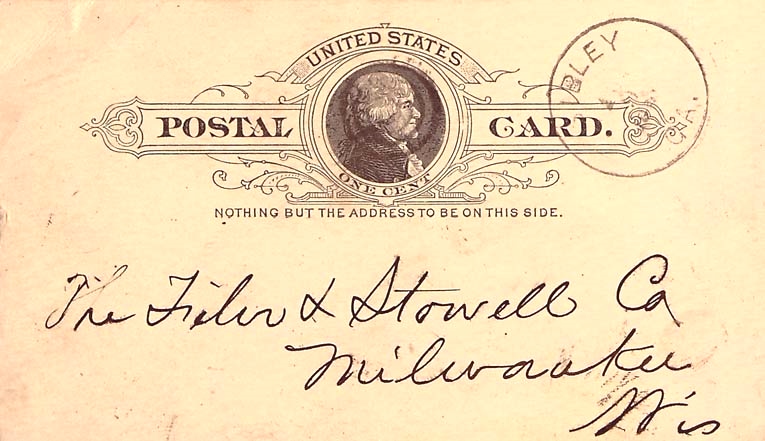 UNITED STATES
POSTAL CARD.
ONE CENT
NOTHING BUT THE ADDRESS TO BE ON THIS SIDE.
The Filer & Stowell Co
Milwaukee
Wis